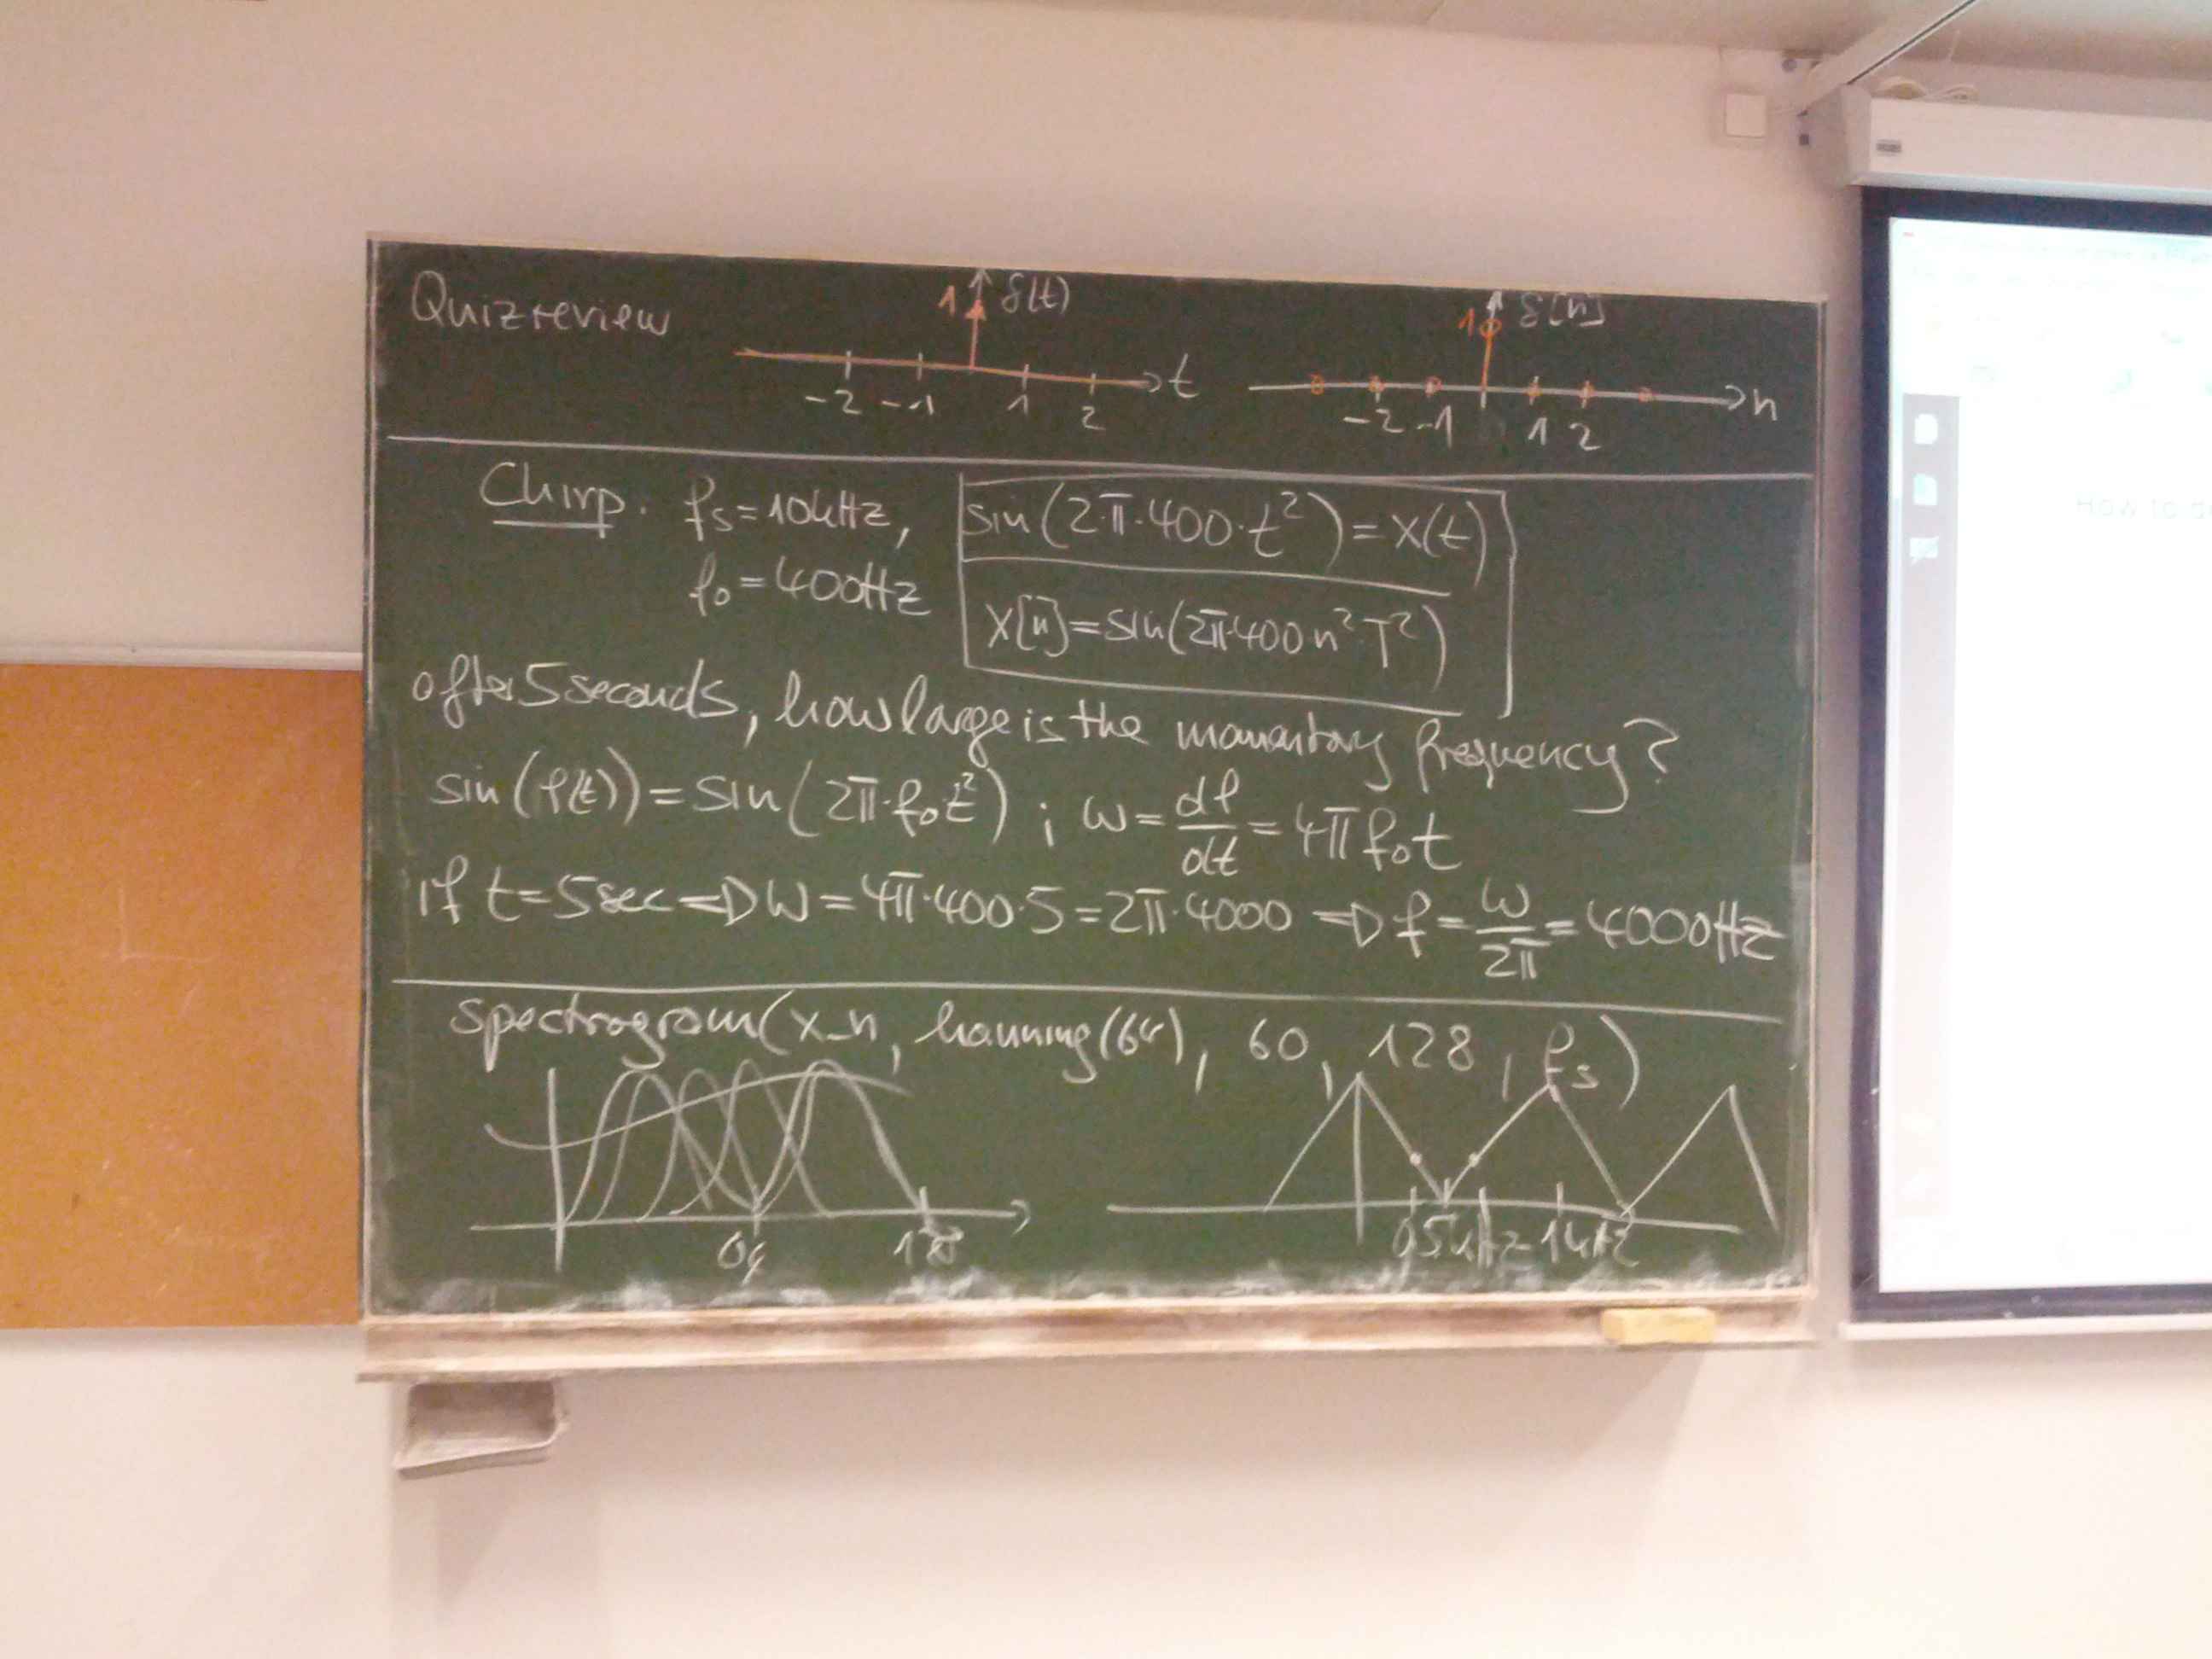 Quizreview
1 δ(t)
-2 -1 1 2 t
1 δ[n]
-2 -1 1 2 n
Chirp. fs=10kHz,
f0=400Hz
sin(2·π·400·t²)=x(t)
x[n]=sin(2π·400n²·T²)
after 5 seconds, how large is the momentary frequency?
sin(φ(t))=sin(2π·f0t²) ; ω=dφ/dt=4πf0t
if t=5sec ⇒ ω=4π·400·5=2π·4000 ⇒ f=ω/2π=4000Hz
spectrogram(x_n, hanning(64), 60, 128, fs)
64 128
0,5kHz 1kHz
How to